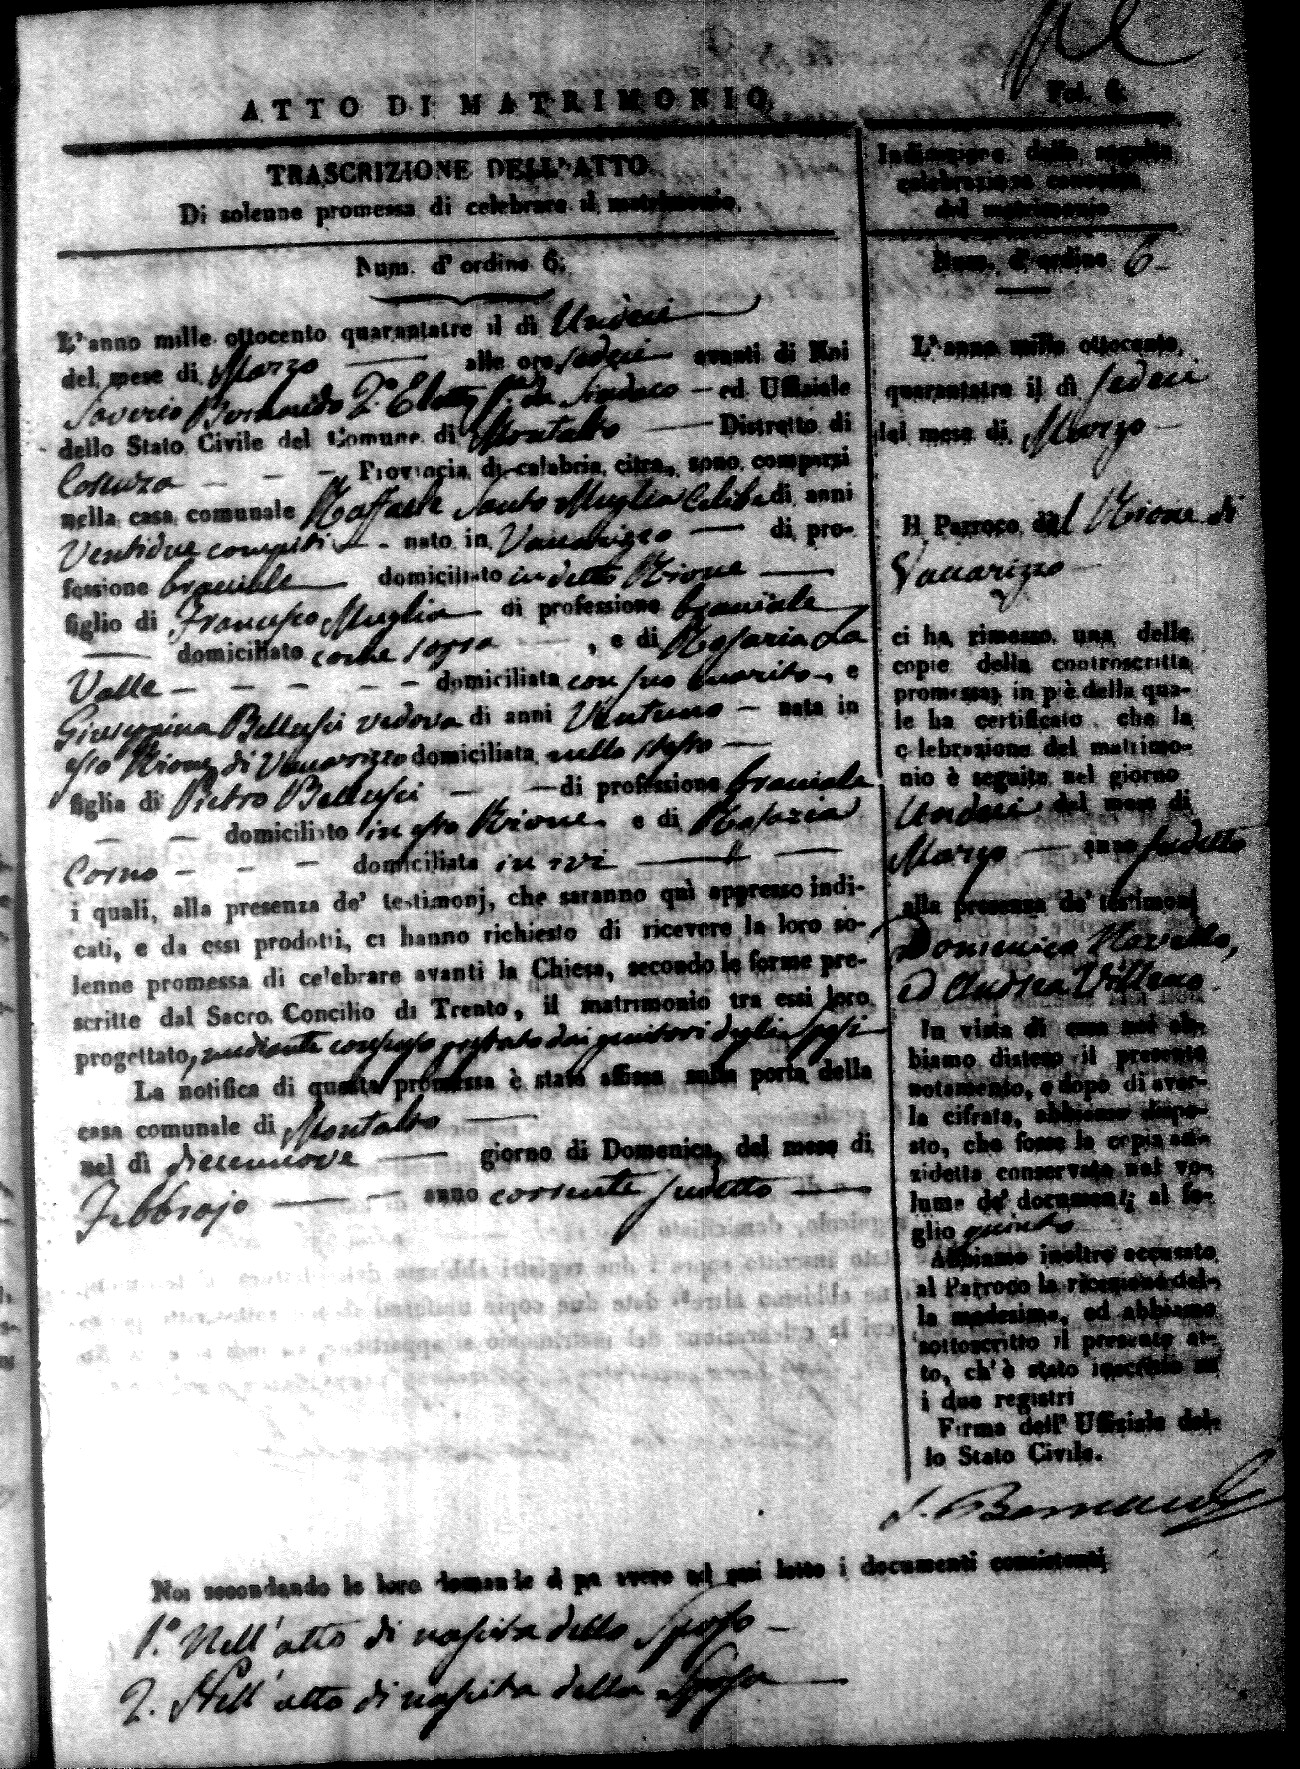 Fol. 6.
ATTO DI MATRIMONIO
TRASCRIZIONE DELL'ATTO
Di solenne promessa di celebrare il matrimonio.
Num. d'ordine 6.
L'anno mille ottocento quarantatre il dì Undeci
del mese di Marzo alle ore sedeci avanti di Noi
Saverio Bernardo 2.º Eletto ff. da Sindaco ed Uffiziale
dello Stato Civile del Comune di Montalto Distretto di
Cosenza Provincia di calabria citra, sono comparsi
nella casa comunale Raffaele Santo Muglia Celibe di anni
Ventidue compiti nato in Vaccarizzo di pro-
fessione bracciale domiciliato in detto Rione
figlio di Francesco Muglia di professione bracciale
domiciliato come sopra , e di Rosaria La
Valle domiciliata con suo marito, e
Giuseppina Bellusci vedova di anni Ventuno nata in
esso Rione di Vaccarizzo domiciliata nello stesso
figlia di Pietro Bellusci di professione bracciale
domiciliato in esso Rione e di Rosaria
Corno domiciliata in ivi
i quali, alla presenza de' testimonj, che saranno quì appresso indi-
cati, e da essi prodotti, ci hanno richiesto di ricevere la loro so-
lenne promessa di celebrare avanti la Chiesa, secondo le forme pre-
scritte dal Sacro Concilio di Trento, il matrimonio tra essi loro
progettato, mediante consenso prestato dai genitori degli Sposi
La notifica di questa promessa è stata affissa sulla porta della
casa comunale di Montalto
nel dì diecinnove giorno di Domenica, del mese di
Febbrajo anno corrente sudetto
Indicazione della seguita
celebrazione canonica
del matrimonio
Num. d'ordine 6
L'anno mille ottocento
quarantatre il dì sedeci
del mese di Marzo
Il Parroco del Rione di
Vaccarizzo
ci ha rimesso una delle
copie della controscritta
promessa, in piè della qua-
le ha certificato, che la
celebrazione del matrimo-
nio è seguita nel giorno
Undeci del mese di
Marzo anno sudetto
alla presenza de' testimonj
Domenico
ed Andrea
In vista di essa noi ab-
biamo disteso il presente
notamento, e dopo di aver-
la cifrata, abbiamo dispo-
sto, che fosse la copia an-
zidetta conservata nel vo-
lume de' documenti al fo-
glio quinto
Abbiamo inoltre accusato
al Parroco la ricezione del-
la medesima, ed abbiamo
sottoscritto il presente at-
to, ch'è stato inscritto su
i due registri
Firma dell'Uffiziale del-
lo Stato Civile.
S. Bernardo
Noi secondando le loro domande d po avere ad essi letto i documenti consistenti
1.º Nell'atto di nascita dello Sposo
2. Nell'atto di nascita della Sposa